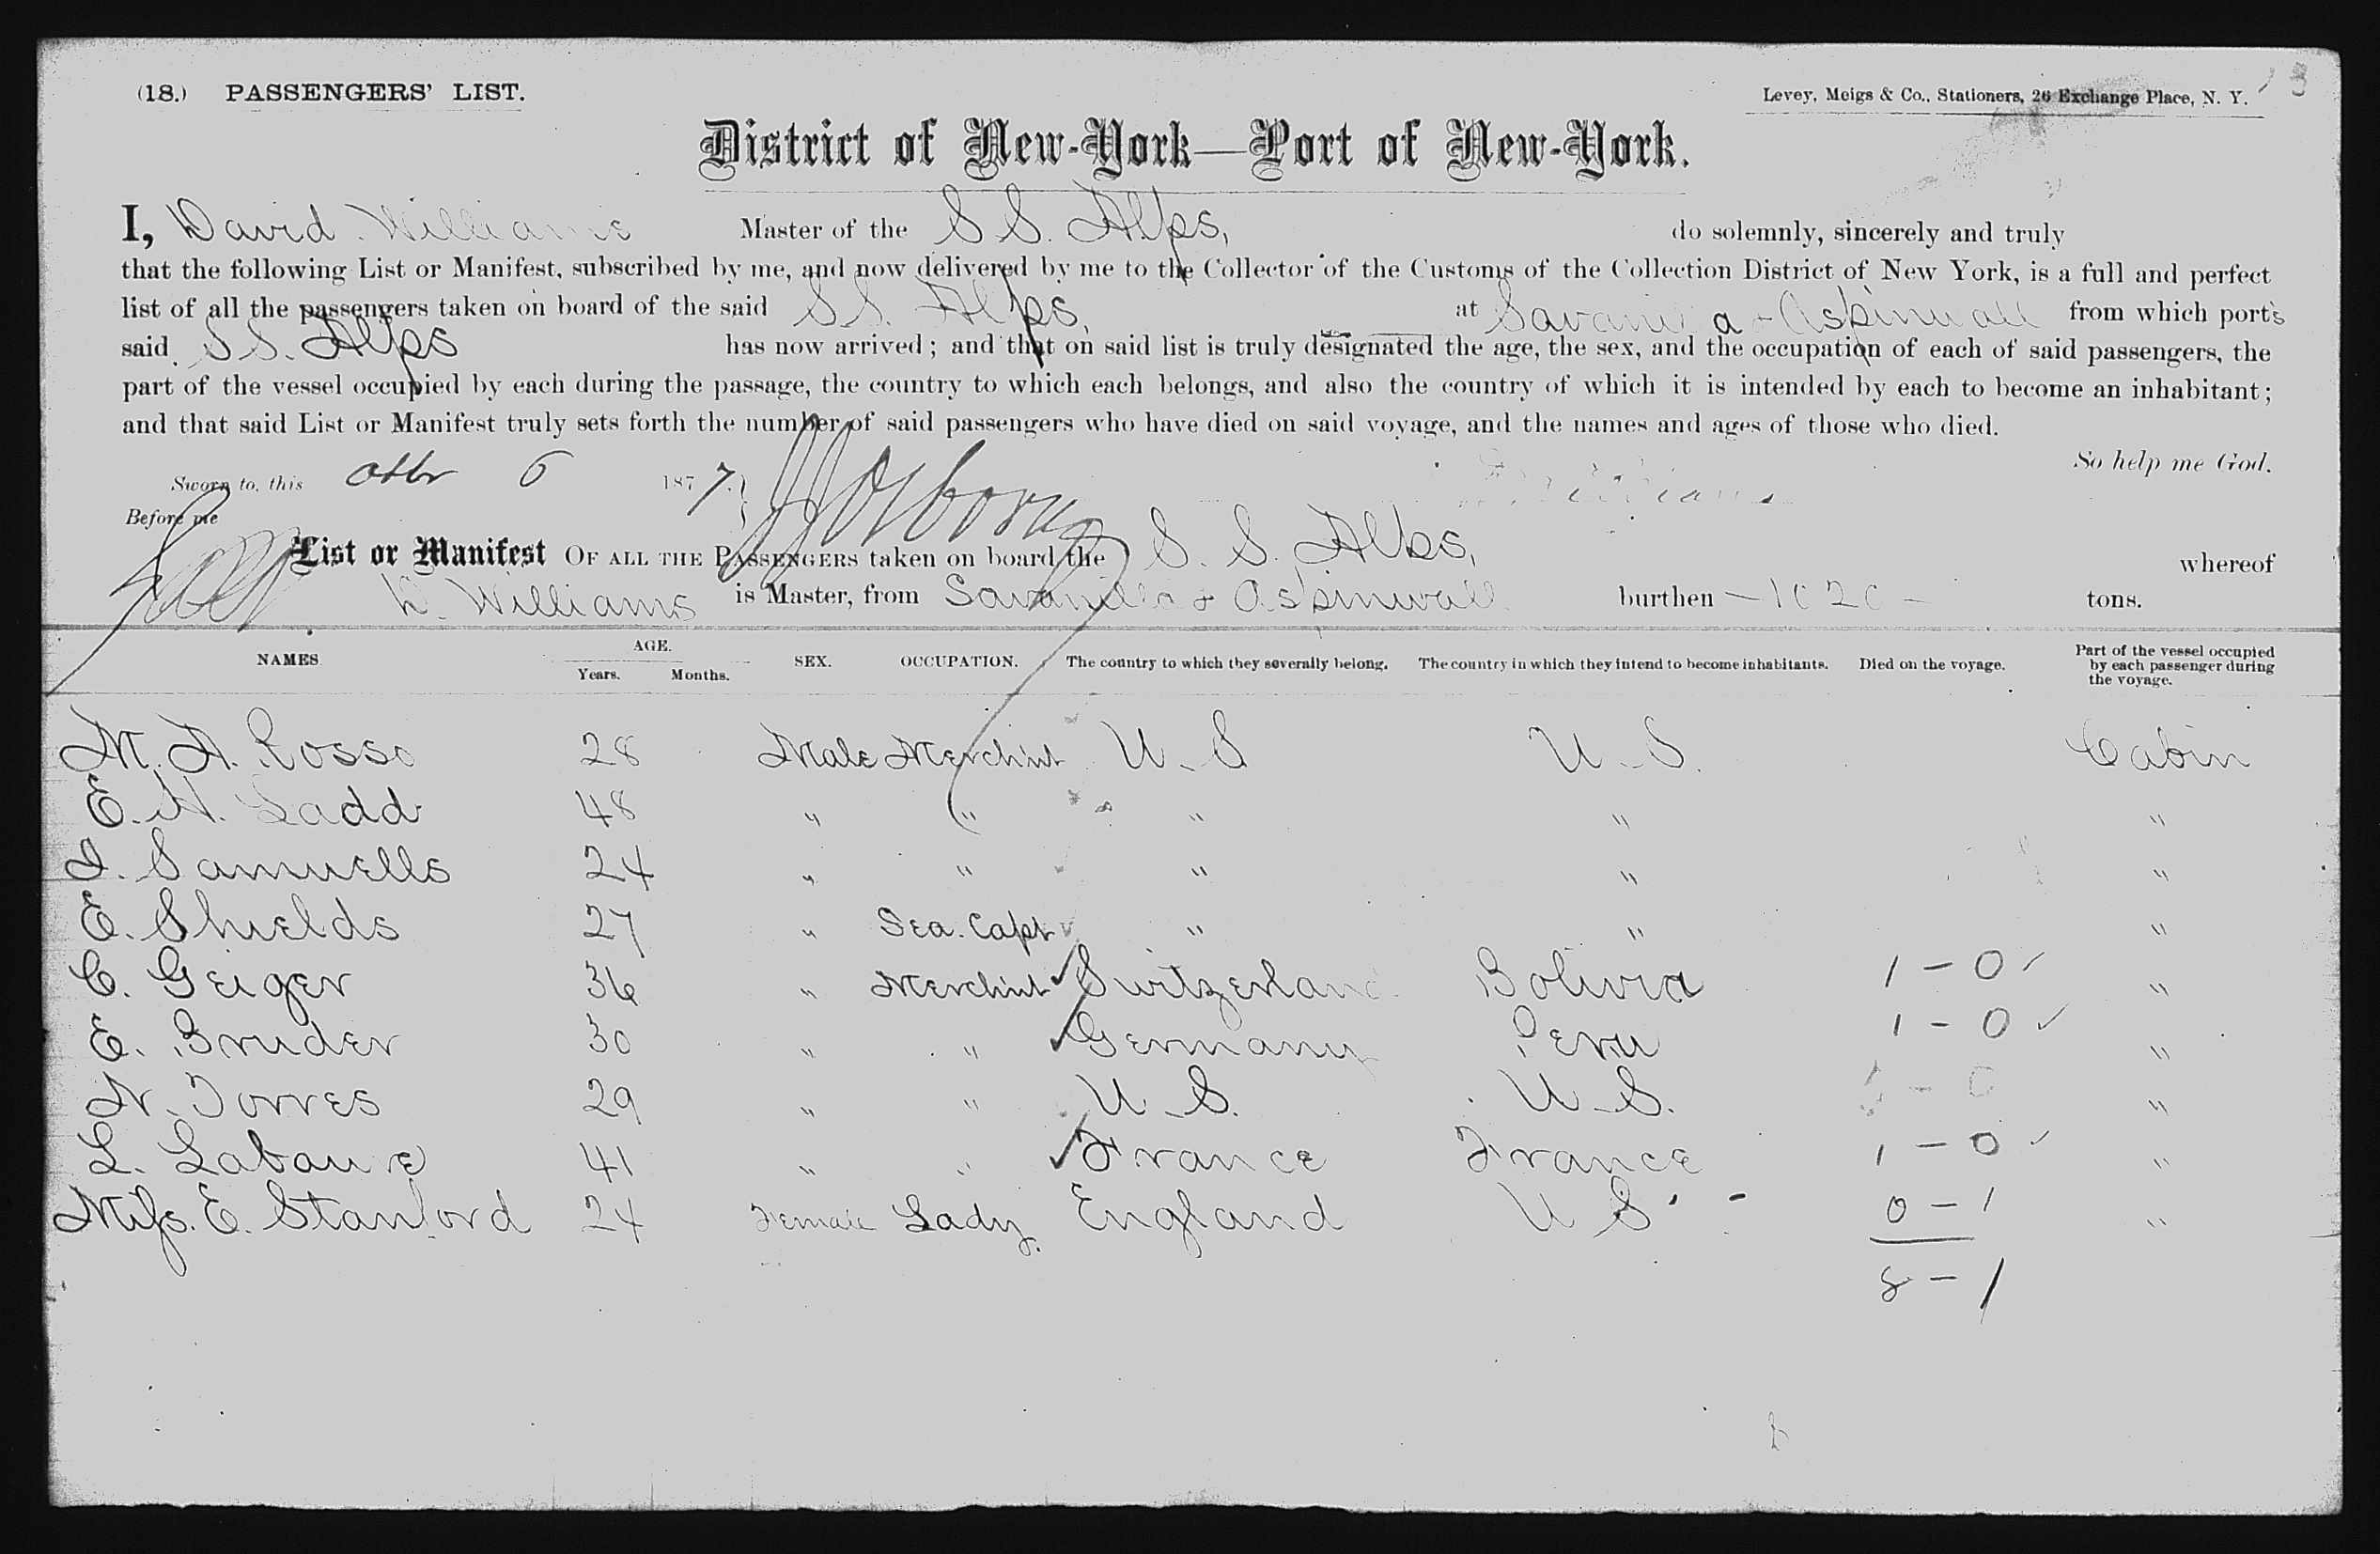 (18.) PASSENGERS' LIST.
Levey, Meigs & Co., Stationers, 26 Exchange Place, N. Y.
District of New-York—Port of New-York.
I, David Williams Master of the S S. Alps, do solemnly, sincerely and truly
that the following List or Manifest, subscribed by me, and now delivered by me to the Collector of the Customs of the Collection District of New York, is a full and perfect
list of all the passengers taken on board of the said S S. Alps, at Savanilla + Aspinwall from which ports
said S S. Alps has now arrived; and that on said list is truly designated the age, the sex, and the occupation of each of said passengers, the
part of the vessel occupied by each during the passage, the country to which each belongs, and also the country of which it is intended by each to become an inhabitant;
and that said List or Manifest truly sets forth the number of said passengers who have died on said voyage, and the names and ages of those who died.
So help me God.
Sworn to, this Otbr 6 1877. D. Williams
Before me
List or Manifest OF ALL THE PASSENGERS taken on board the S. S. Alps, whereof
D. Williams is Master, from Savanilla + Aspinwall burthen — 1020 — tons.
NAMES AGE. Years. Months. SEX. OCCUPATION. The country to which they severally belong. The country in which they intend to become inhabitants. Died on the voyage. Part of the vessel occupied by each passenger during the voyage.
M. A. Rosso 28 Male Merchint U. S U. S. Cabin
E. H. Ladd 48 " " " " "
I. Samuells 24 " " " " "
E. Shields 27 " Sea. Capt " " "
C. Geiger 36 " Merchint Switzerland Bolivia 1 - 0 "
E. Bruder 30 " " Germany Peru 1 - 0 "
N. Torres 29 " " U. S. U. S. 5 - 0 "
L. Labaure 41 " " France France 1 - 0 "
Miss. E. Stanford 24 Female Lady. England U S - 0 - 1 "
8 - 1